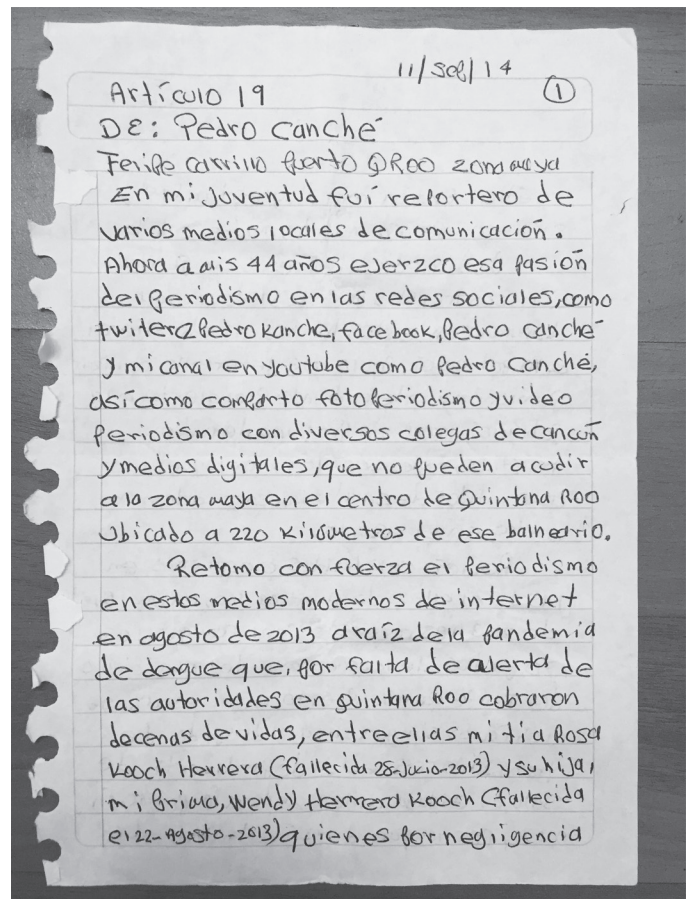 11/Sep/14
①
Artículo 19
DE: Pedro Canché
Felipe Carrillo Puerto QROO zona maya
En mi juventud fuí reportero de
varios medios locales de comunicación.
Ahora a mis 44 años ejerzco esa pasión
del periodismo en las redes sociales, como
twiter@PedroKanche, facebook, Pedro Canché
y mi canal en youtube como Pedro Canché,
así como comparto fotoperiodismo y video
periodismo con diversos colegas de cancún
y medios digitales, que no pueden acudir
a la zona maya en el centro de Quintana Roo
Ubicado a 220 Kilómetros de ese balneario.
Retomo con fuerza el periodismo
en estos medios modernos de internet
en agosto de 2013 araíz de la pandemia
de dengue que, por falta de alerta de
las autoridades en quintana Roo cobraron
decenas de vidas, entre ellas mi tía Rosa
Kooch Herrera (fallecida 28-Julio-2013) y su hija,
mi prima, Wendy Herrera Kooch (fallecida
el 22-Agosto-2013) quienes por negligencia